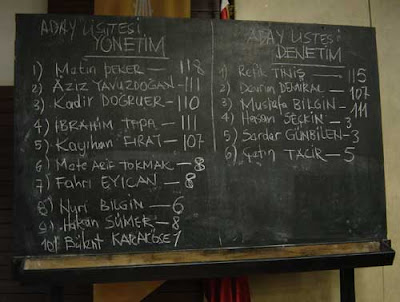 ADAY LİSTESİ
YÖNETİM
1) Metin PEKER — 118
2) AZİZ YAVUZDOĞAN — 111
3) Kadir DOĞRUER — 110
4) İBRAHİM TAPA — 111
5) Kayıhan FIRAT — 107
6) Mete Arif TOKMAK — 8
7) Fahri EYİCAN — 8
8) Nuri BİLGİN — 6
9) Hakan SÜMER — 8
10) Bülent KARAKÖSE 7
ADAY LİSTESİ
DENETİM
1) Refik TİNİŞ — 115
2) Devrim DEMİRAL — 107
3) Mustafa BİLGİN — 111
4) Hasan SEÇKİN — 3
5) Serdar GÜNBİLEN — 3
6) Çetin TACİR — 5